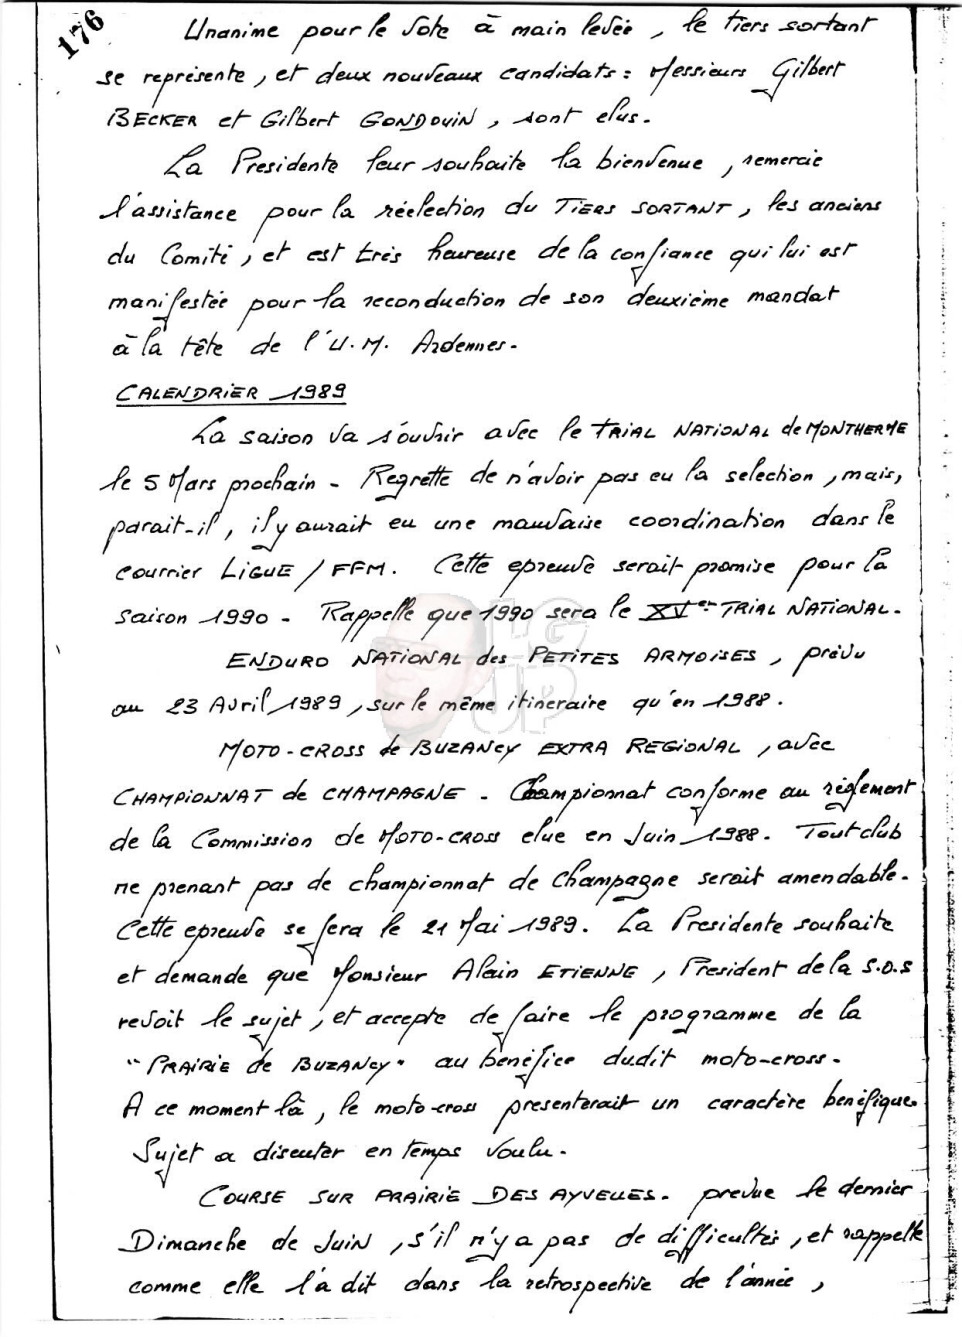 176
Unanime pour le vote à main levée, le tiers sortant
se représente, et deux nouveaux candidats : Messieurs Gilbert
BECKER et Gilbert GONDOUIN, sont elus.
La Presidente leur souhaite la bienvenue, remercie
l'assistance pour la réelection du TIERS SORTANT, les anciens
du Comité, et est très heureuse de la confiance qui lui est
manifestée pour la reconduction de son deuxième mandat
à la tête de l'U.M. Ardennes.
CALENDRIER 1989
La saison va s'ouvrir avec le TRIAL NATIONAL de MONTHERME
le 5 Mars prochain - Regrette de n'avoir pas eu la selection, mais,
parait-il, il y aurait eu une mauvaise coordination dans le
courrier LIGUE / FFM. Cette epreuve serait promise pour la
saison 1990 - Rappelle que 1990 sera le XVe TRIAL NATIONAL.
ENDURO NATIONAL des PETITES ARMOISES, prévu
au 23 Avril 1989, sur le même itineraire qu'en 1988.
MOTO-CROSS de BUZANCY EXTRA REGIONAL, avec
CHAMPIONNAT de CHAMPAGNE - Championnat conforme au règlement
de la Commission de MOTO-CROSS elue en Juin 1988. Tout club
ne prenant pas de championnat de Champagne serait amendable.
Cette epreuve se fera le 21 Mai 1989. La Presidente souhaite
et demande que Monsieur Alain ETIENNE, President de la S.O.S
revoit le sujet, et accepte de faire le programme de la
"PRAIRIE de BUZANCY" au bénéfice dudit moto-cross.
A ce moment là, le moto-cross presenterait un caractère benéfique.
Sujet a discuter en temps voulu.
COURSE SUR PRAIRIE DES AYVELLES. prevue le dernier
Dimanche de JUIN, s'il n'y a pas de difficultés, et rappelle
comme elle l'a dit dans la retrospective de l'année,
LG UP